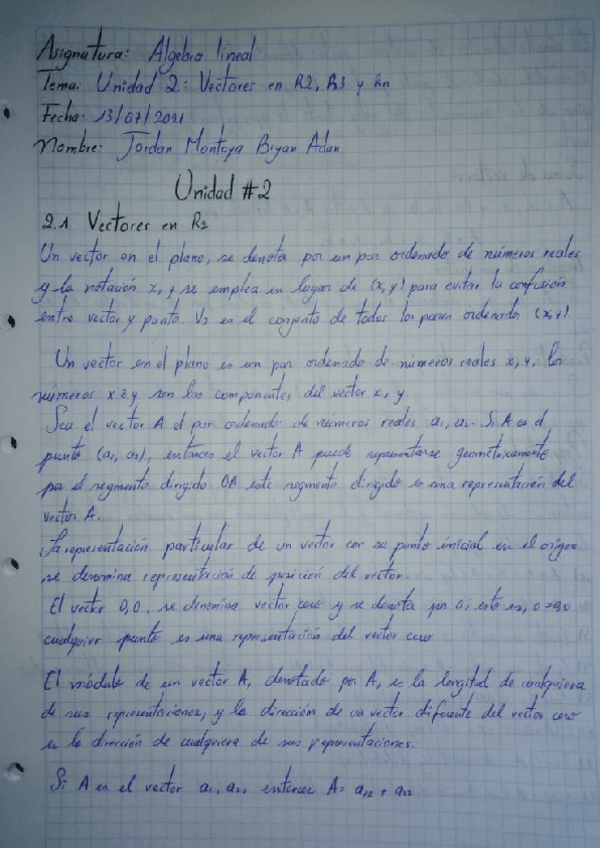 Asignatura: Algebra lineal
Tema: Unidad 2: Vectores en R2, R3 y Rn
Fecha: 13/07/2021
Nombre: Jordan Montoya Bryan Adan
Unidad #2
2.1 Vectores en R2
Un vector en el plano, se denota por un par ordenado de números reales
y la notación x, y se emplea en lugar de (x, y) para evitar la confusión
entre vector y punto. V2 es el conjunto de todos los pares ordenados (x, y).
Un vector en el plano es un par ordenado de números reales x, y, los
números x e y son los componentes del vector x, y
Sea el vector A el par ordenado de números reales a1, a2. Si A es el
punto (a1, a2), entonces el vector A puede representarse geométricamente
por el segmento dirigido OA este segmento dirigido es una representación del
vector A.
La representación particular de un vector con su punto inicial en el origen
se denomina representación de posición del vector.
El vector 0,0. se denomina vector cero y se denota por 0; esto es, 0=0,0
cualquier punto es una representación del vector cero
El módulo de un vector A, denotado por A, es la longitud de cualquiera
de sus representaciones, y la dirección de un vector diferente del vector cero
es la dirección de cualquiera de sus representaciones.
Si A es el vector a1, a2, entonces A= a12 + a22